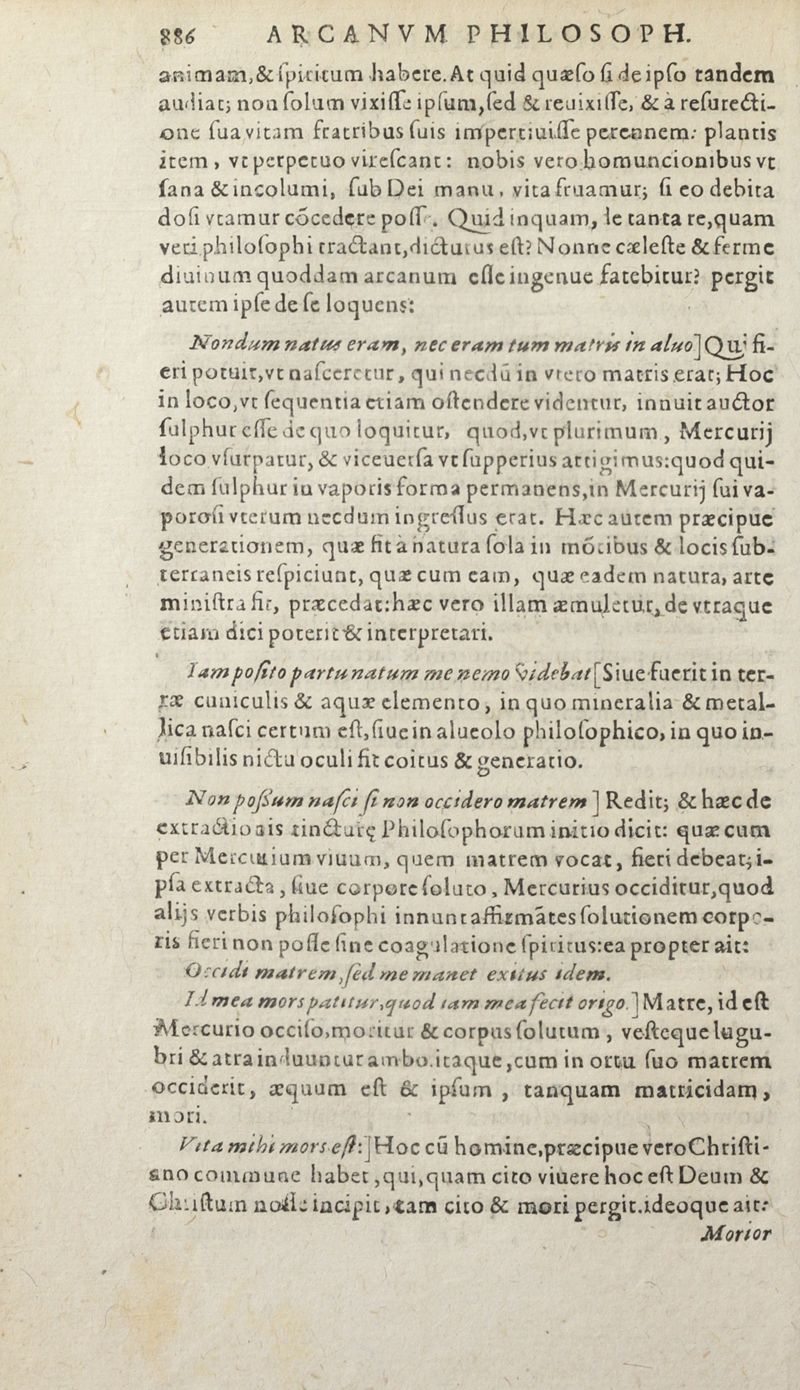 886 ARCANVM PHILOSOPH.
animam,& ſpiritum habere. At quid quæſo ſi de ipſo tandem
audiat; non ſolum vixiſſe ipſum, ſed & reuixiſſe, & à reſurecti-
one ſua vitam fratribus ſuis impertiuiſſe perennem: plantis
item, vt perpetuo vireſcant: nobis vero homuncionibus vt
ſana & incolumi, ſub Dei manu, vita fruamur; ſi eo debita
doſi vtamur cōcedere poſſe. Quid inquam, de tanta re, quam
veri philoſophi tractant, dicturus eſt? Nonne cæleſte & ferme
diuinum quoddam arcanum eſſe ingenue fatebitur? pergit
autem ipſe de ſe loquens:
Nondum natus eram, nec eram tum matris in aluo] Qui fi-
eri potuit, vt naſceretur, qui necdū in vtero matris erat; Hoc
in loco, vt ſequentia etiam oſtendere videntur, innuit auctor
ſulphur eſſe de quo loquitur, quod, vt plurimum, Mercurij
loco vſurpatur, & viceuerſa vt ſupperius attigimus: quod qui-
dem ſulphur in vaporis forma permanens, in Mercurij ſui va-
poroſi vterum necdum ingreſſus erat. Hæc autem præcipue
generationem, quæ fit à natura ſola in mōtibus & locis ſub-
terraneis reſpiciunt, quæ cum eam, quæ eadem natura, arte
miniſtra fit, præcedat: hæc vero illam æmuletur, de vtraque
etiam dici poterit & interpretari.
Iam poſito partu natum me nemo videbat[Siue fuerit in ter-
ræ cuniculis & aquæ elemento, in quo mineralia & metal-
lica naſci certum eſt, ſiue in alueolo philoſophico, in quo in-
uiſibilis nictu oculi fit coitus & generatio.
Non poſſum naſci ſi non occidero matrem ] Redit; & hæc de
extractionis tincturę Philoſophorum initio dicit: quæ cum
per Mercurium viuum, quem matrem vocat, fieri debeat; i-
pſa extracta, ſiue corpore ſoluto, Mercurius occiditur, quod
alijs verbis philoſophi innunt affirmātes ſolutionem corpo-
ris fieri non poſſe ſine coagulatione ſpiritus: ea propter ait:
Occidi matrem, ſed me manet exitus idem.
Id mea mors patitur, quod iam mea fecit origo.] Matre, id eſt
Mercurio occiſo, moritur & corpus ſolutum, veſteque lugu-
bri & atra induuntur ambo. itaque, cum in ortu ſuo matrem
occiderit, æquum eſt & ipſum, tanquam matricidam,
mori.
Vita mihi mors eſt:] Hoc cū homine, præcipue vero Chriſti-
ano commune habet, qui, quam cito viuere hoc eſt Deum &
Chriſtum noſſe incipit, tam cito & mori pergit. ideoque ait:
Morior